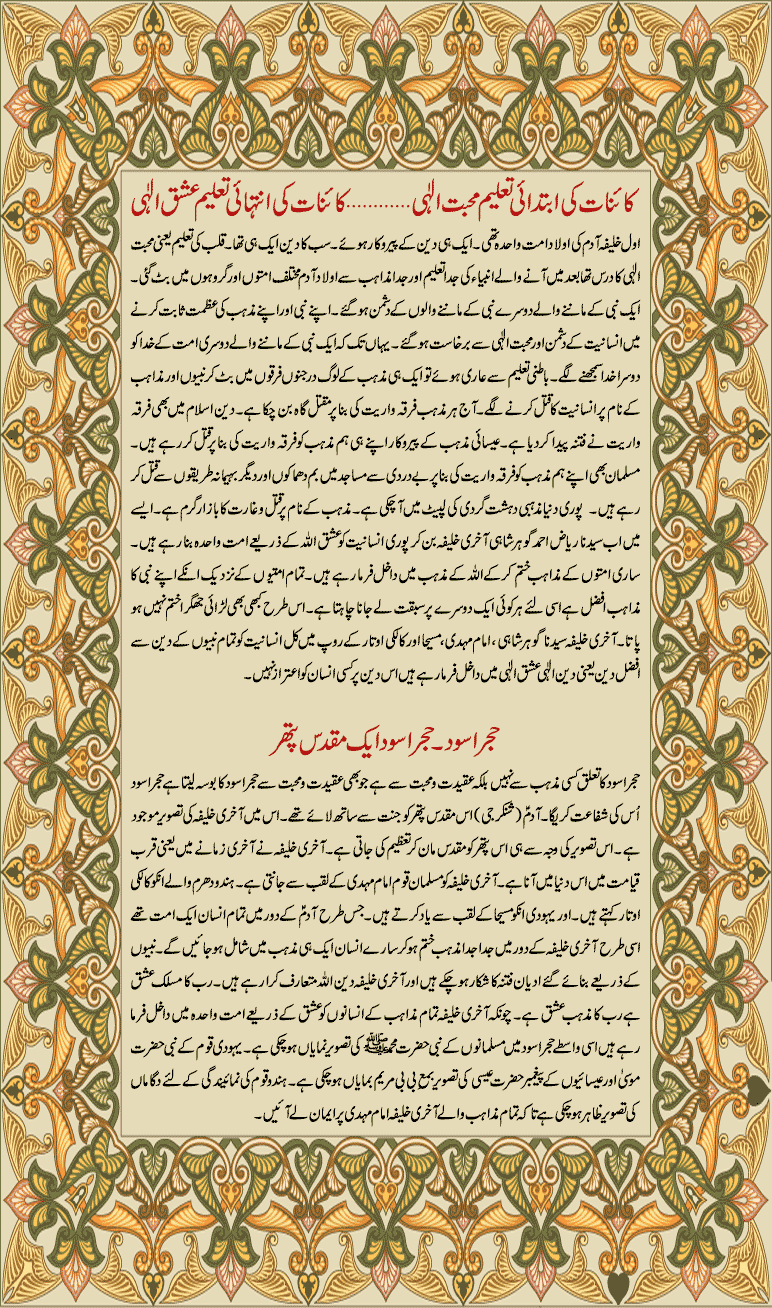 کائنات کی ابتدائی تعلیم محبت الٰہی ............ کائنات کی انتہائی تعلیم عشق الٰہی
اول خلیفہ آدم کی اولاد امت واحدہ تھی۔ ایک ہی دین کے پیروکار ہوئے۔ سب کا دین ایک ہی تھا۔ قلب کی تعلیم یعنی محبت
الٰہی کا درس تھا بعد میں آنے والے انبیاء کی جدا تعلیم اور جدا مذاہب سے اولاد آدم مختلف امتوں اور گروہوں میں بٹ گئی۔
ایک نبی کے ماننے والے دوسرے نبی کے ماننے والوں کے دشمن ہو گئے۔ اپنے نبی اور اپنے مذہب کی عظمت ثابت کرنے
میں انسانیت کے دشمن اور محبت الٰہی سے برخاست ہو گئے۔ یہاں تک کہ ایک نبی کے ماننے والے دوسری امت کے خدا کو
دوسرا خدا سمجھنے لگے۔ باطنی تعلیم سے عاری ہوئے تو ایک ہی مذہب کے لوگ درجنوں فرقوں میں بٹ کر نبیوں اور مذاہب
کے نام پر انسانیت کا قتل کرنے لگے۔ آج ہر مذہب فرقہ واریت کی بنا پر مقتل گاہ بن چکا ہے۔ دین اسلام میں بھی فرقہ
واریت نے فتنہ پیدا کر دیا ہے۔ عیسائی مذہب کے پیروکار اپنے ہی ہم مذہب کو فرقہ واریت کی بنا پر قتل کر رہے ہیں۔
مسلمان بھی اپنے ہم مذہب کو فرقہ واریت کی بنا پر بے دردی سے مساجد میں بم دھماکوں اور دیگر بہیمانہ طریقوں سے قتل کر
رہے ہیں۔ پوری دنیا مذہبی دہشت گردی کی لپیٹ میں آ چکی ہے۔ مذہب کے نام پر قتل و غارت کا بازار گرم ہے۔ ایسے
میں اب سیدنا ریاض احمد گوہر شاہی آخری خلیفہ بن کر پوری انسانیت کو عشق اللہ کے ذریعے امت واحدہ بنا رہے ہیں۔
ساری امتوں کے مذاہب ختم کر کے اللہ کے مذہب میں داخل فرما رہے ہیں۔ تمام امتیوں کے نزدیک انکے اپنے نبی کا
مذاہب افضل ہے اسی لئے ہر کوئی ایک دوسرے پر سبقت لے جانا چاہتا ہے۔ اس طرح بھی بھی لڑائی جھگڑا ختم نہیں ہو
پاتا۔ آخری خلیفہ سیدنا گوہر شاہی، امام مہدی، مسیحا اور کالکی اوتار کے روپ میں کل انسانیت کو تمام نبیوں کے دین سے
افضل دین یعنی دین الٰہی عشق الٰہی میں داخل فرما رہے ہیں اس دین پر کسی انسان کو اعتراز نہیں۔
حجر اسود۔ حجر اسود ایک مقدس پتھر
حجر اسود کا تعلق کسی مذہب سے نہیں بلکہ عقیدت و محبت سے ہے جو بھی عقیدت و محبت سے حجر اسود کا بوسہ لیتا ہے حجر اسود
اُس کی شفاعت کریگا۔ آدمؑ (شنکر جی) اس مقدس پتھر کو جنت سے ساتھ لائے تھے۔ اس میں آخری خلیفہ کی تصویر موجود
ہے۔ اس تصویر کی وجہ سے ہی اس پتھر کو مقدس مان کر تعظیم کی جاتی ہے۔ آخری خلیفہ نے آخری زمانے میں یعنی قرب
قیامت میں اس دنیا میں آنا ہے۔ آخری خلیفہ کو مسلمان قوم امام مہدی کے لقب سے جانتی ہے۔ ہندو دھرم والے انکو کالکی
اوتار کہتے ہیں۔ اور یہودی انکو مسیحا کے لقب سے یاد کرتے ہیں۔ جس طرح آدمؑ کے دور میں تمام انسان ایک امت تھے
اسی طرح آخری خلیفہ کے دور میں جدا جدا مذہب ختم ہو کر سارے انسان ایک ہی مذہب میں شامل ہو جائیں گے۔ نبیوں
کے ذریعے بنائے گئے ادیان فتنہ کا شکار ہو چکے ہیں اور آخری خلیفہ دین اللہ متعارف کرا رہے ہیں۔ رب کا مسلک عشق
ہے رب کا مذہب عشق ہے۔ چونکہ آخری خلیفہ تمام مذاہب کے انسانوں کو عشق کے ذریعے امت واحدہ میں داخل فرما
رہے ہیں اسی واسطے حجر اسود میں مسلمانوں کے نبی حضرت محمدﷺ کی تصویر نمایاں ہو چکی ہے۔ یہودی قوم کے نبی حضرت
موسیٰ اور عیسائیوں کے پیغمبر حضرت عیسی کی تصویر بمع بی بی مریم بمایاں ہو چکی ہے۔ ہندو قوم کی نمائیندگی کے لئے دگاماں
کی تصویر ظاہر ہو چکی ہے تاکہ تمام مذاہب والے آخری خلیفہ امام مہدی پر ایمان لے آئیں۔